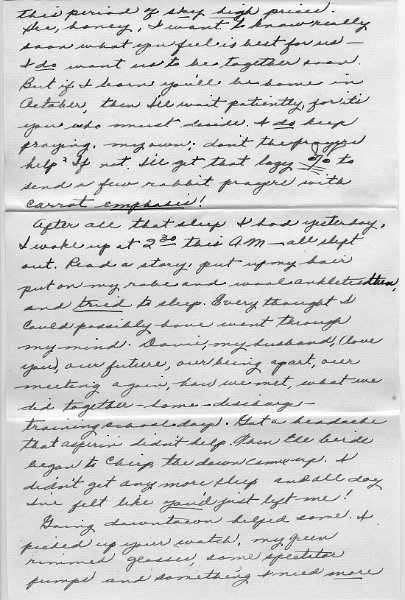 this period of sky high prices.
Gee, honey, I want to know really
soon what you feel is best for us —
I do want us to be together soon.
But if I learn you'll be home in
October, then I'll wait patiently, for it's
you who must decide. I do keep
praying, my own; don't the prayers
help? If not I'll get that lazy to
send a few rabbit prayers with
carrot emphasis!
After all that sleep I had yesterday,
I woke up at 2³⁰ this A.M — all slept
out. Read a story, put up my hair
put on my robe and wool anklets then,
and tried to sleep. Every thought I
could possibly have went through
my mind. Davie, my husband, (love
you), our future, our being apart, our
meeting again, how we met, what we
did together — home — discharge —
training school days. Got a headache
that aspirin didn't help. Then the birds
began to chirp, the dawn came up. I
didn't get any more sleep and all day
I've felt like you'd just left me!
Going downtown helped some. I
picked up your watch, my green
rimmed glasses, some spectator
pumps and something I need more